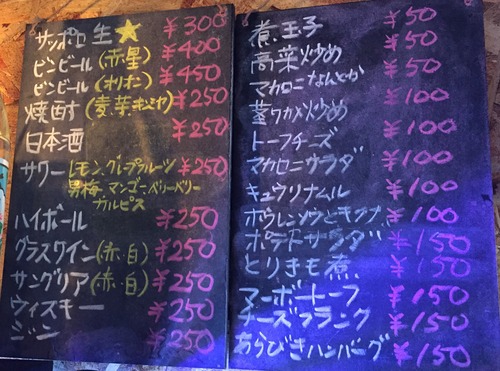 サッポロ生★ ¥300
ビンビール(赤星) ¥400
ビンビール(オリオン) ¥450
焼酎(麦.芋.キンミヤ) ¥250
日本酒 ¥250
サワー レモン.グレープフルーツ ¥250
男梅.マンゴー.ベリーベリー
カルピス
ハイボール ¥250
グラスワイン(赤.白) ¥250
サングリア(赤.白) ¥250
ウィスキー ¥250
ジン ¥250
煮玉子 ¥50
高菜炒め ¥50
マカロニなんとか ¥50
茎ワカメ炒め ¥100
トーフチーズ ¥100
マカロニサラダ ¥100
キュウリナムル ¥100
ホウレンソウとモヤシ ¥100
ポテトサラダ ¥150
とりきも煮 ¥150
マーボートーフ ¥150
チーズフランク ¥150
あらびきハンバーグ ¥150